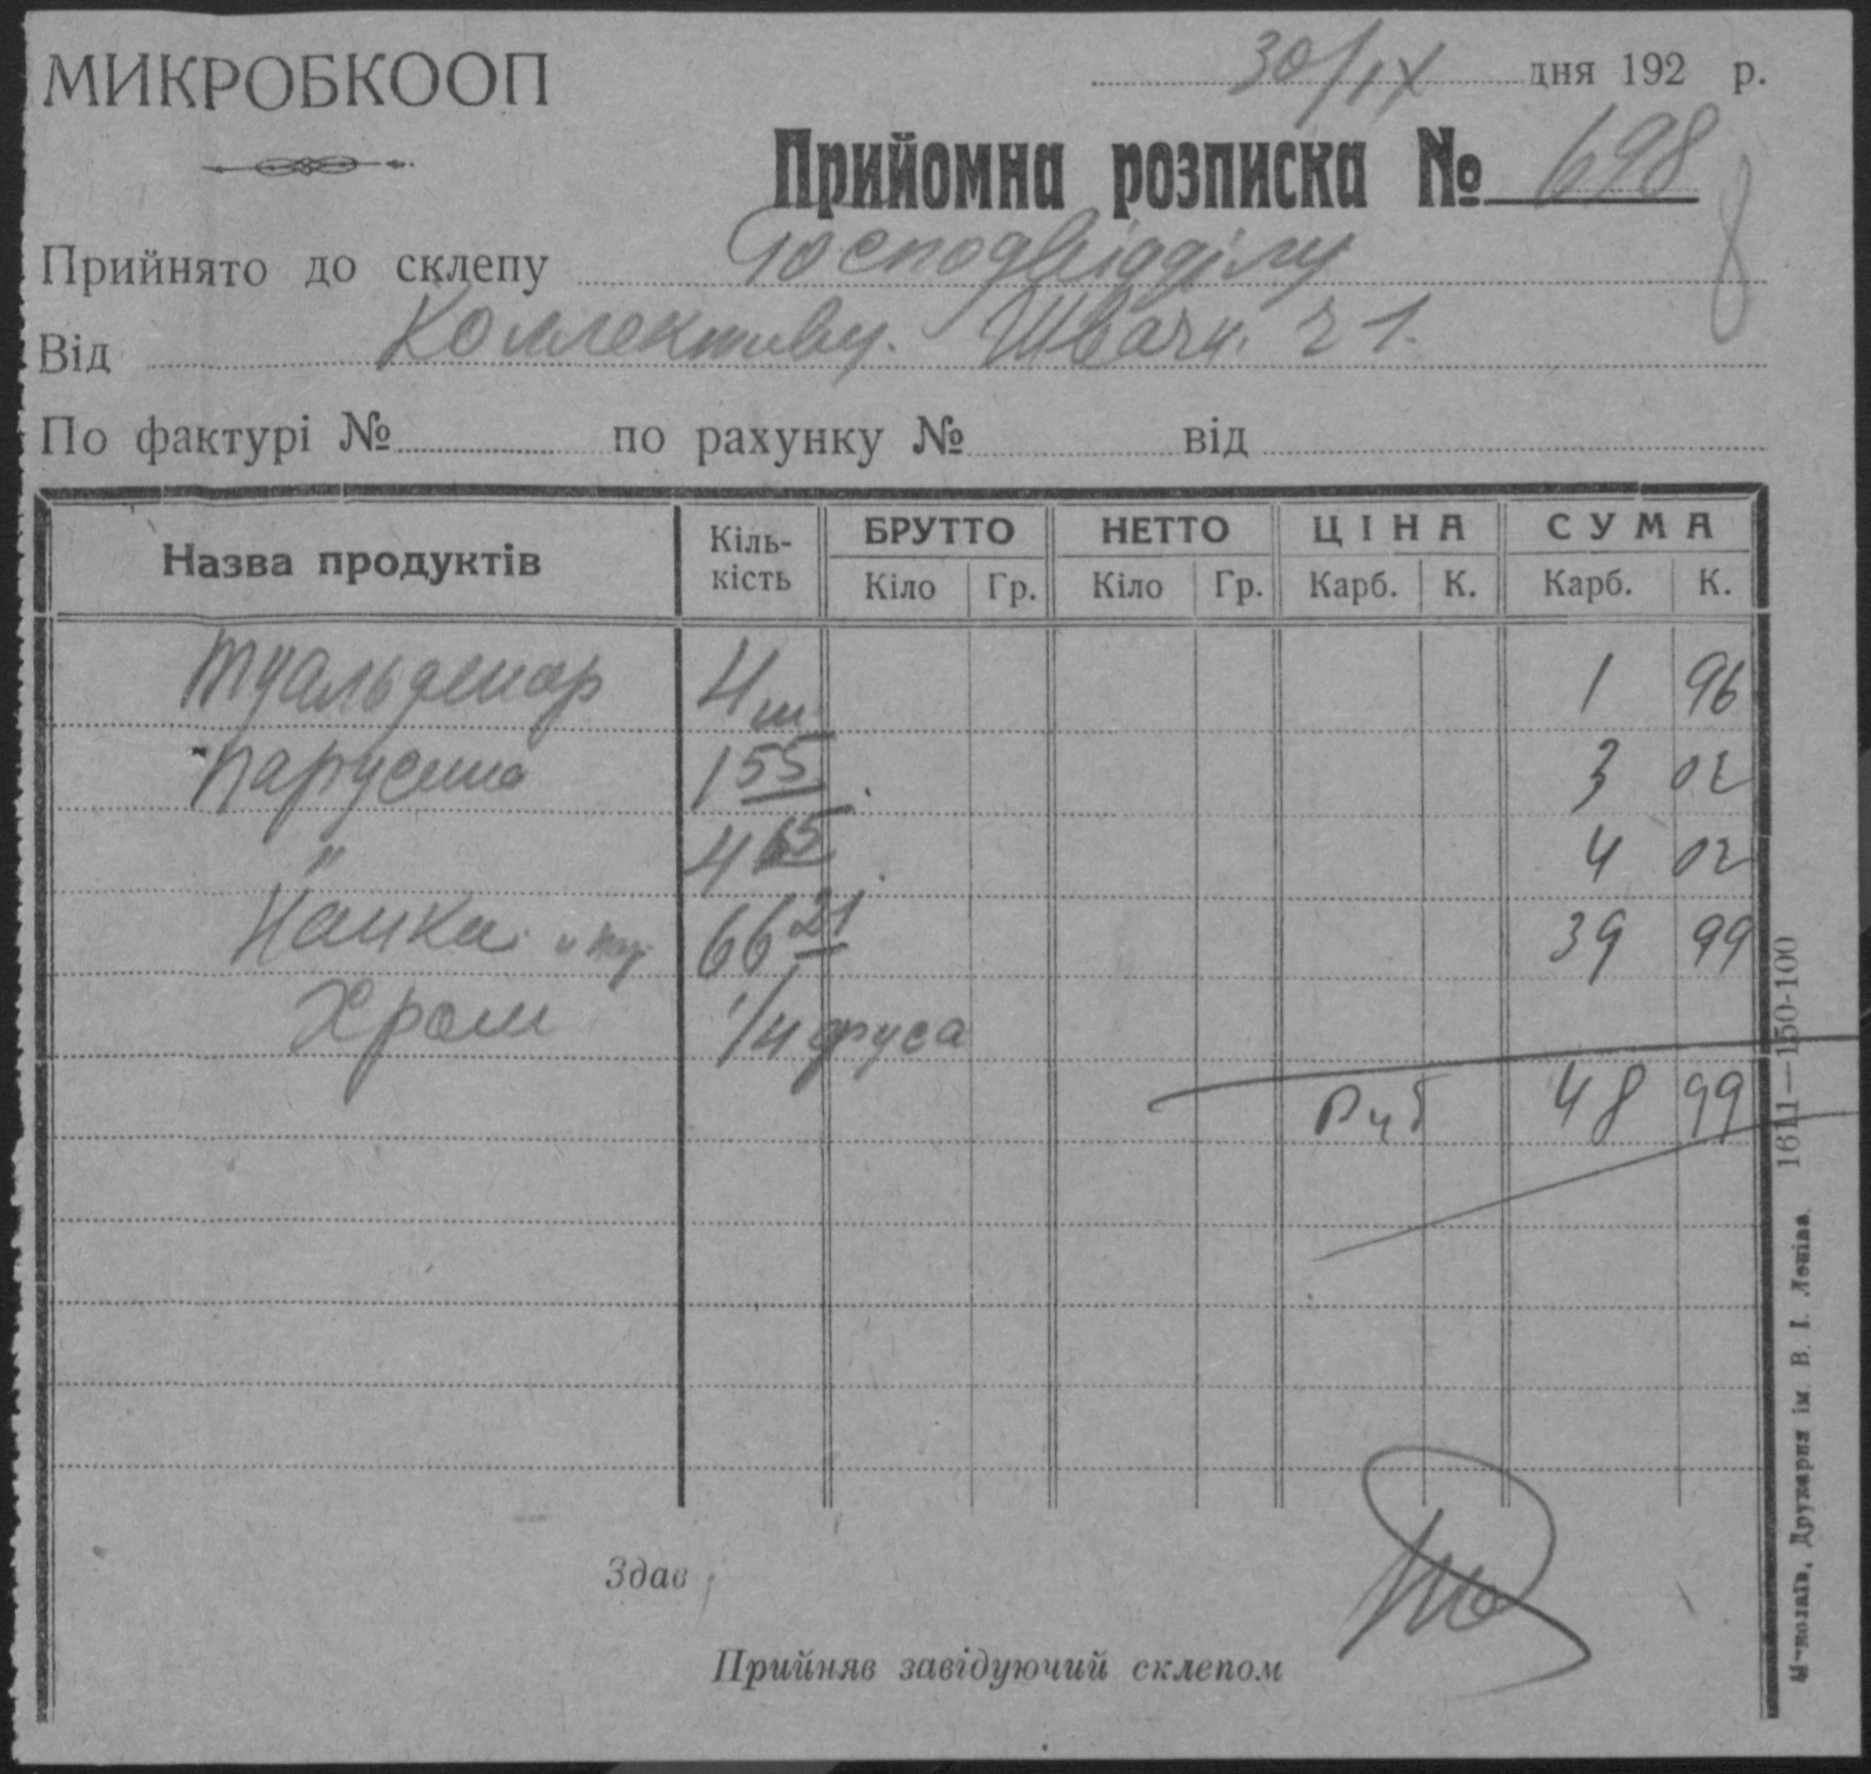 МИКРОБКООП
30/IX дня 192 р.
Прийомна розписка № 698
8
Прийнято до склепу Господвідділу
Від Коллективу. Швачк. ч 1.
По фактурі № по рахунку № від
Назва продуктів Кіль-кість БРУТТО НЕТТО ЦІНА СУМА
Кіло Гр. Кіло Гр. Карб. К. Карб. К.
Туальденор 4 ш. 1 96
Парусина 1 55 3 02
" 4 65 4 02
Нанка 66 21 39 99
Хром 1/4 фуса
Руб 48 99
Здав
Прийняв завідуючий склепом
Миколаїв, Друкарня ім. В. І. Леніна. 1611—150-100